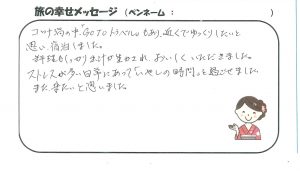 旅の幸せメッセージ (ペンネーム : )
コロナ禍の中「GOTOトラベル」もあり、近くでゆっくりしたいと
思い宿泊しました。
お料理もしっかり味付けが生かされ、おいしくいただきました。
ストレスが多い日常にあって「いやしの時間」を過ごせました。
また、来たいと思いました。